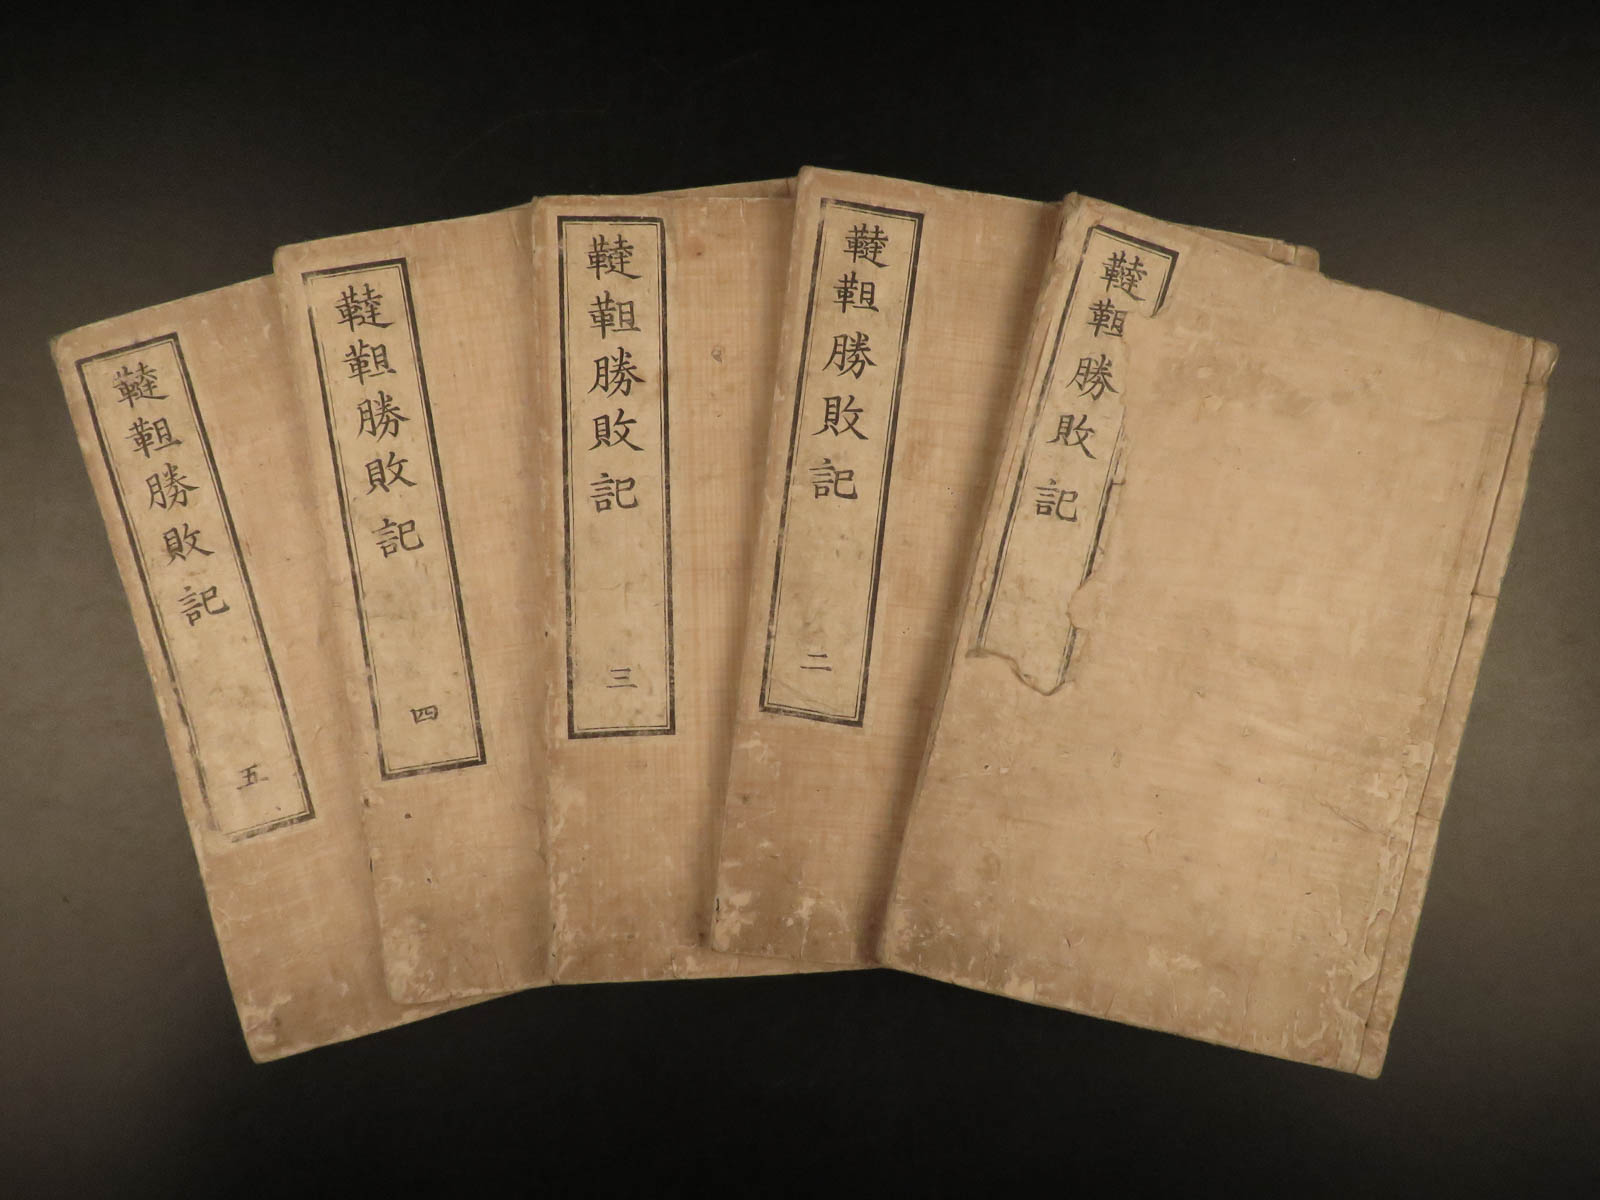 韃靼勝敗記
韃靼勝敗記 二
韃靼勝敗記 三
韃靼勝敗記 四
韃靼勝敗記 五